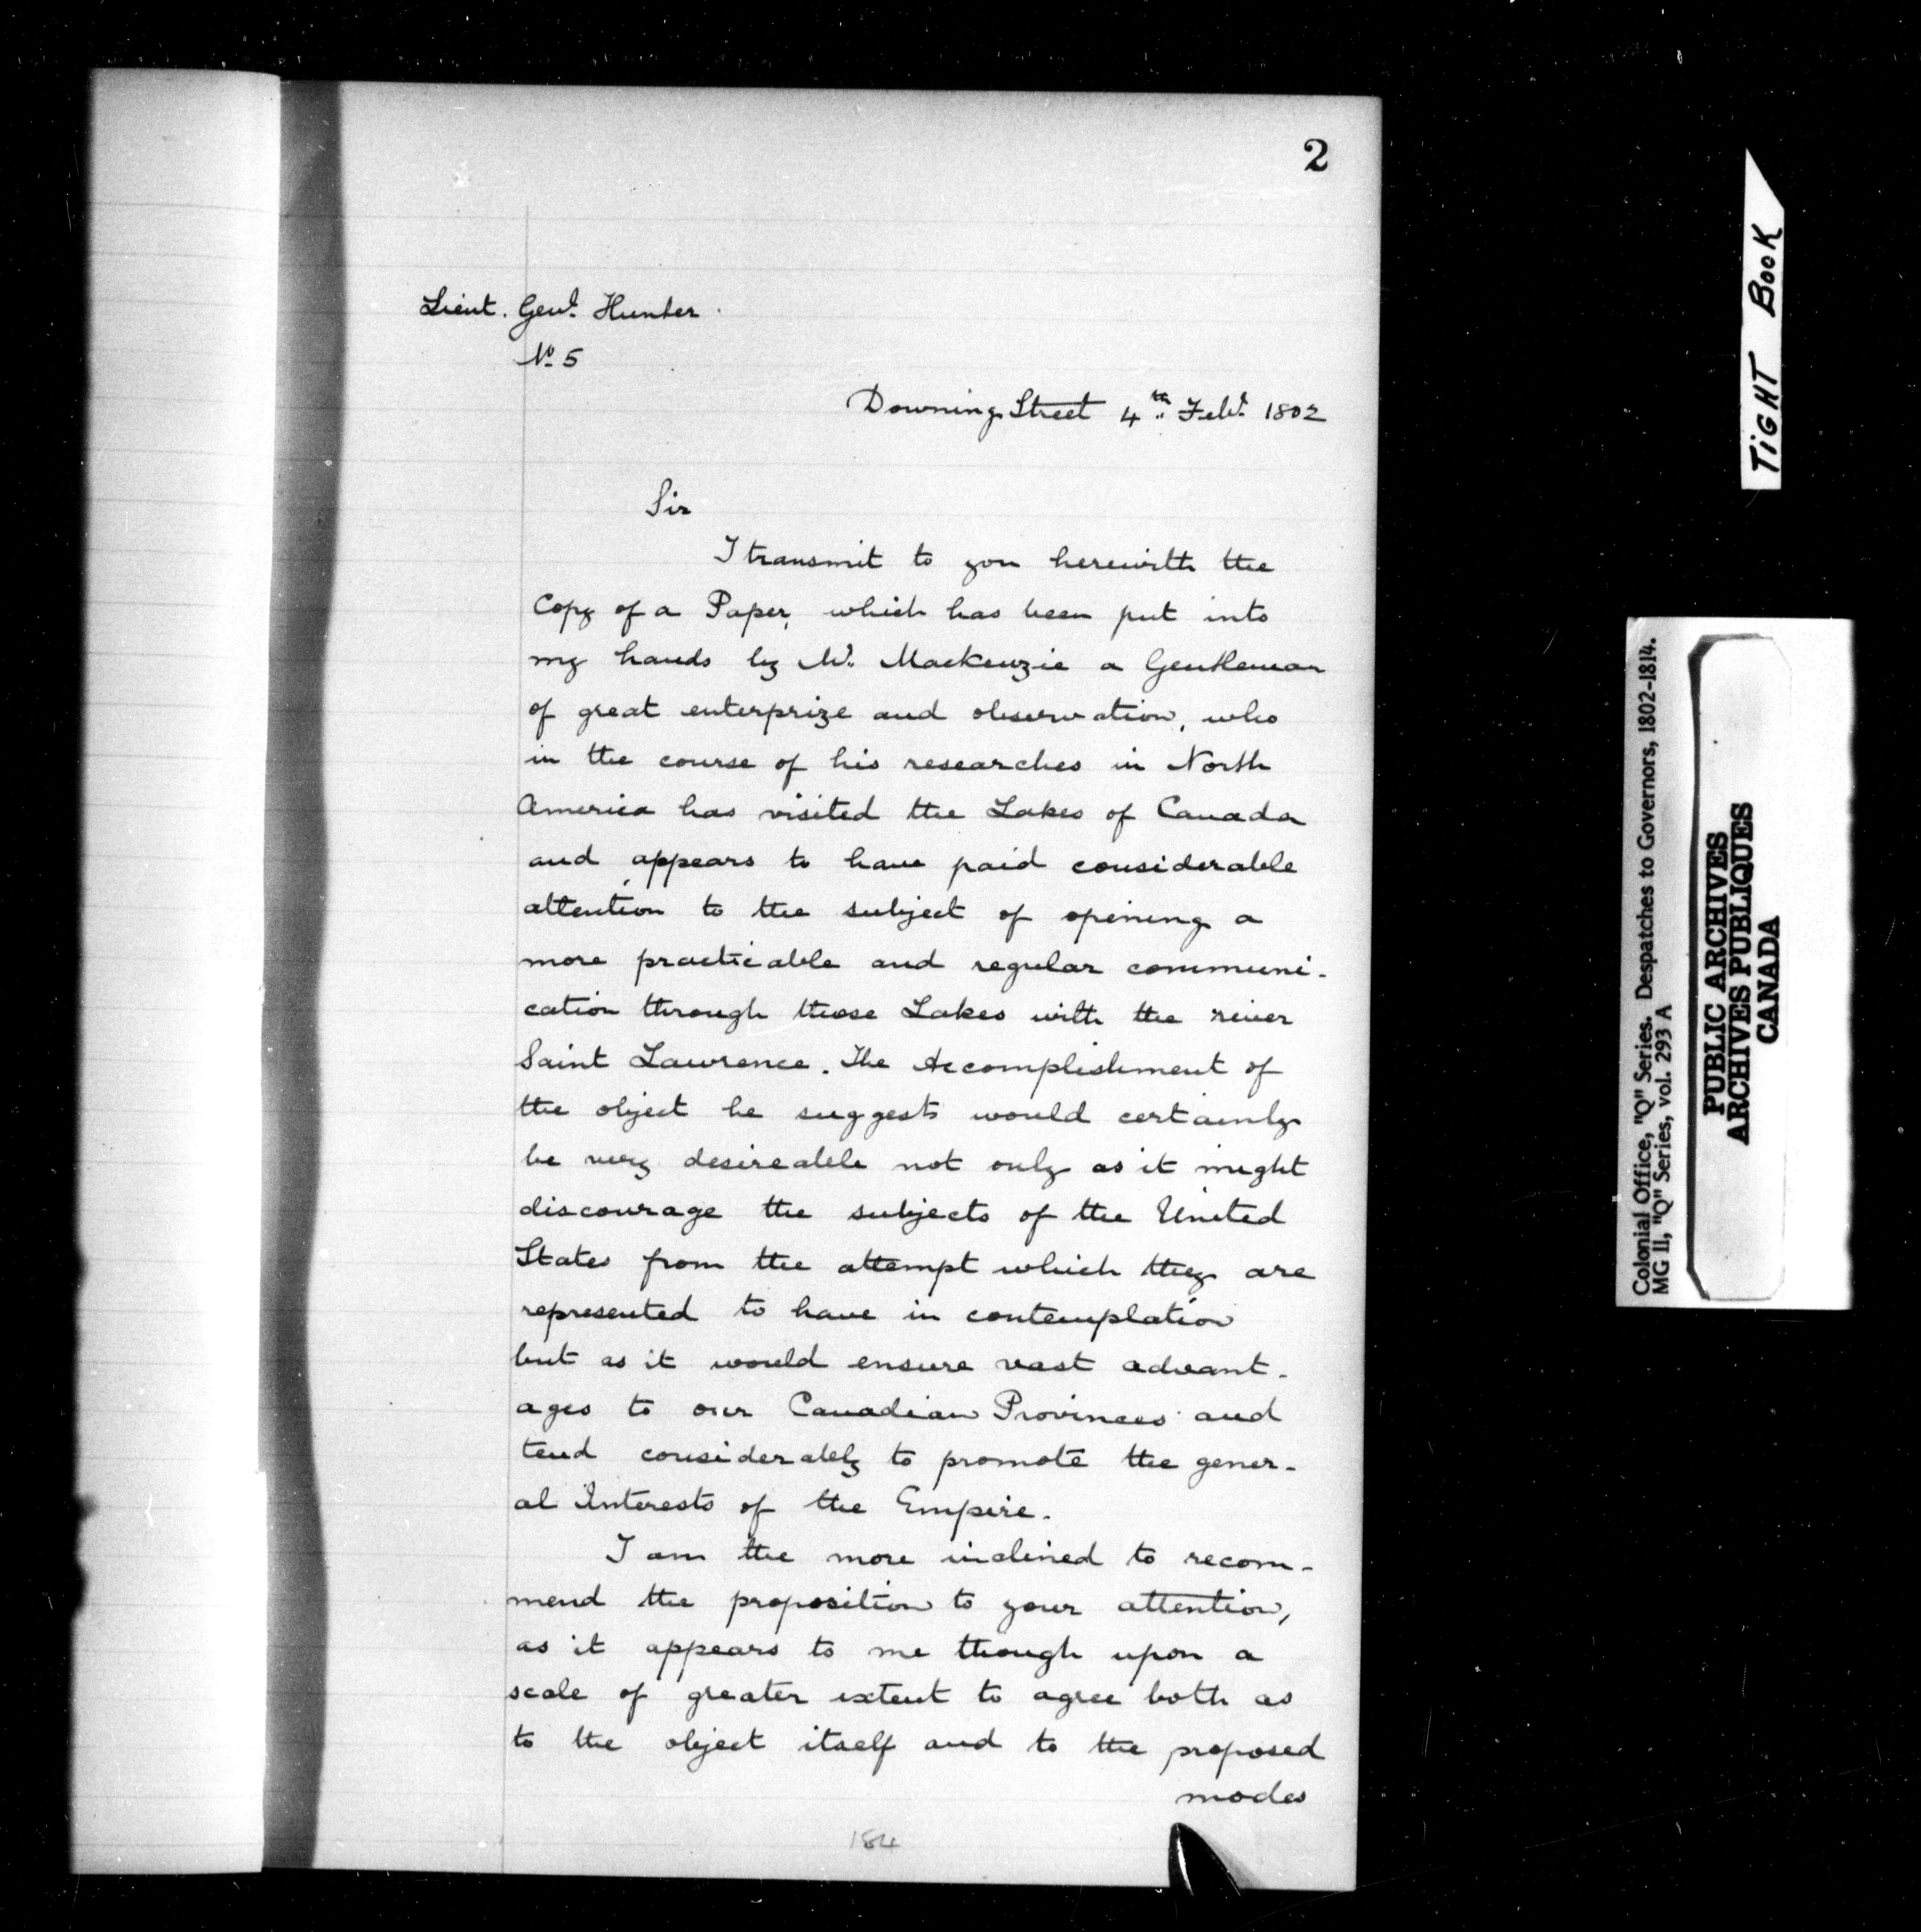 2
Lieut. Genl. Hunter
No. 5
Downing Street 4th.. Feby. 1802
Sir
I transmit to you herewith the
Copy of a Paper, which has been put into
my hands by Mr. Mackenzie a Gentleman
of great enterprize and observation, who
in the course of his researches in North
America has visited the Lakes of Canada
and appears to have paid considerable
attention to the subject of opening a
more practicable and regular communi-
cation through those Lakes with the river
Saint Lawrence. The Accomplishment of
the object he suggests would certainly
be very desireable not only as it might
discourage the subjects of the United
States from the attempt which they are
represented to have in contemplation
but as it would ensure vast advant-
ages to our Canadian Provinces and
tend considerably to promote the gener-
al Interests of the Empire.
I am the more inclined to recom-
mend the proposition to your attention,
as it appears to me though upon a
scale of greater extent to agree both as
to the object itself and to the proposed
modes
184
TIGHT BOOK
Colonial Office, "Q" Series. Despatches to Governors, 1802-1814.
MG 11, "Q" Series, vol. 293 A
PUBLIC ARCHIVES
ARCHIVES PUBLIQUES
CANADA